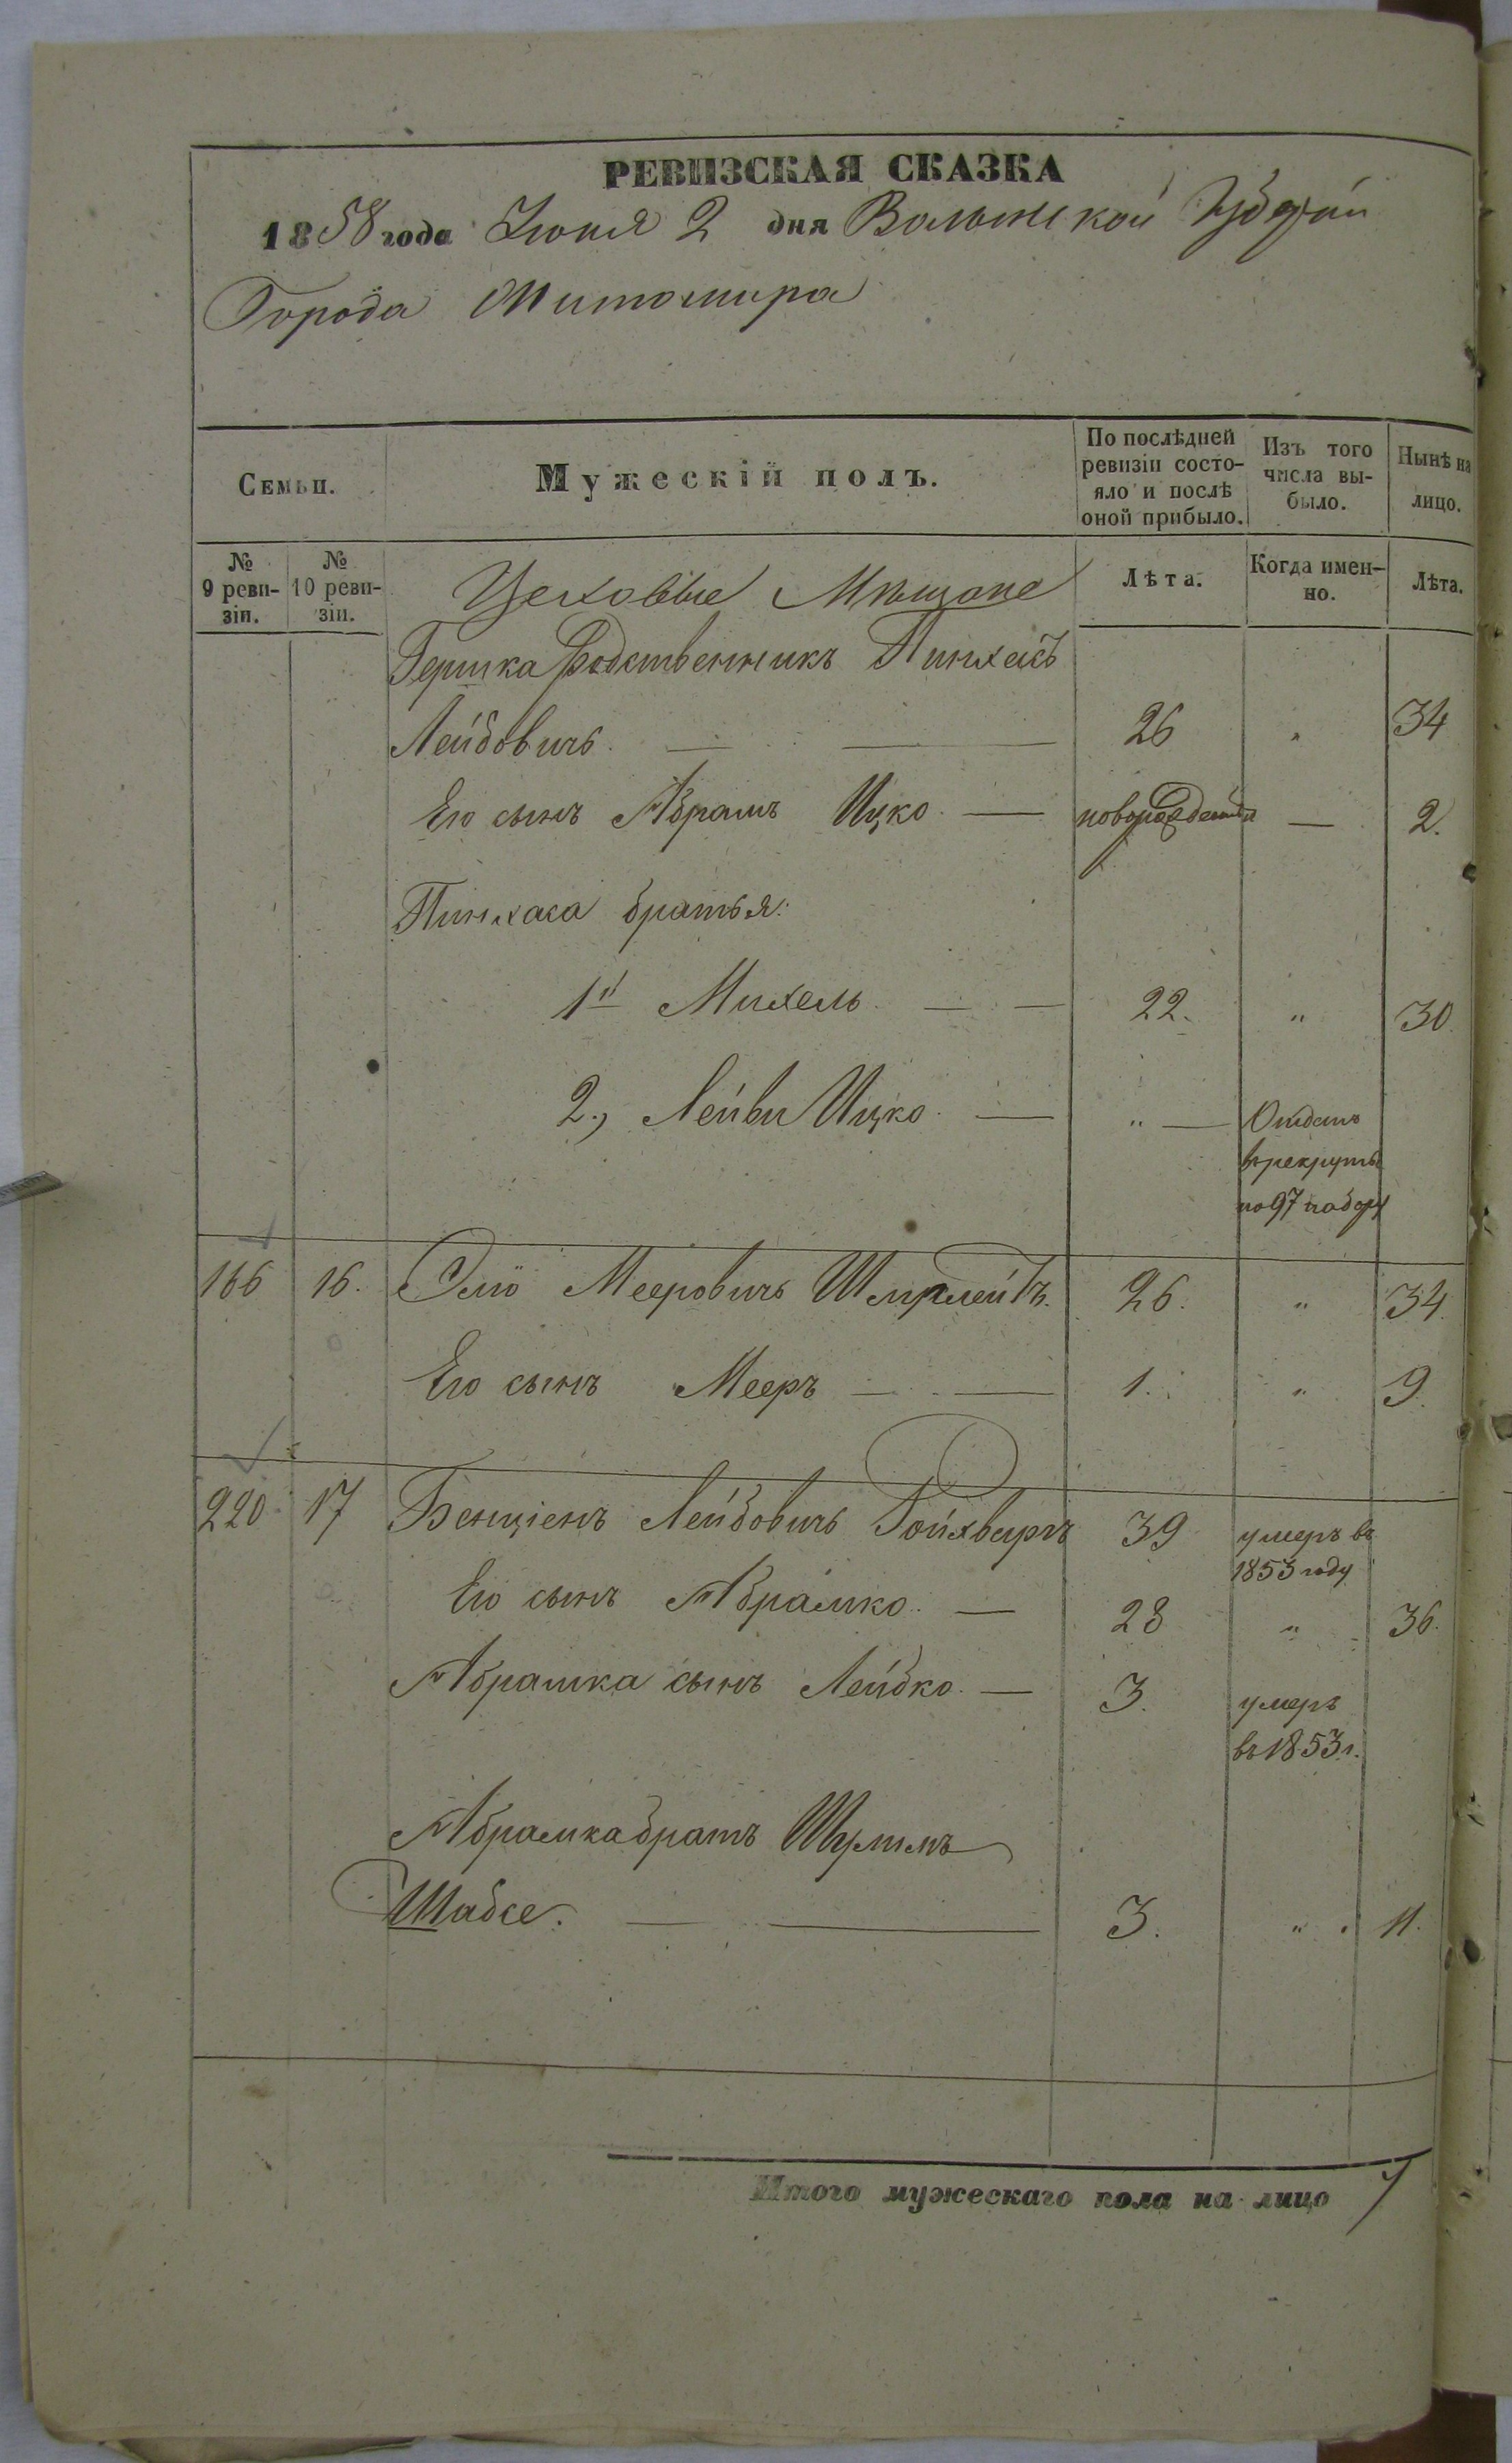 РЕВИЗСКАЯ СКАЗКА
1858 года Июня 2 дня Волынской Губерніи
Города Житомира
Семьи.
Мужескій полъ.
По послѣдней ревизіи состо-яло и послѣ оной прибыло.
Изъ того числа вы-было.
Нынѣ на лицо.
№ 9 реви-зіи.
№ 10 реви-зіи.
Цеховые Мѣщане
Лѣта.
Когда имен-но.
Лѣта.
Гершка родственникъ Пинхасъ
Лейбовичъ. — — 26 " 34
Его сынъ Абрамъ Ицко — новорожденный — 2.
Пинхаса братья:
1й Михель — — 22. " 30
2, Лейви Ицко — " — Отданъ
в рекруты
по 97 набору
166 16. Элiо Мееровичъ 26. " 34.
Его сынъ Мееръ — — 1. " 9.
220 17 Бенціенъ Лейбовичъ Ройхвергъ 39 умеръ въ
1853 году
Его сынъ Абрамко — 28 " 36.
Абрамка сынъ Лейбко — 3. умеръ
въ 1853 г.
Абрамка братъ Шулимъ
Шабсе. — — 3. " 11.
Итого мужескаго пола на лицо 7